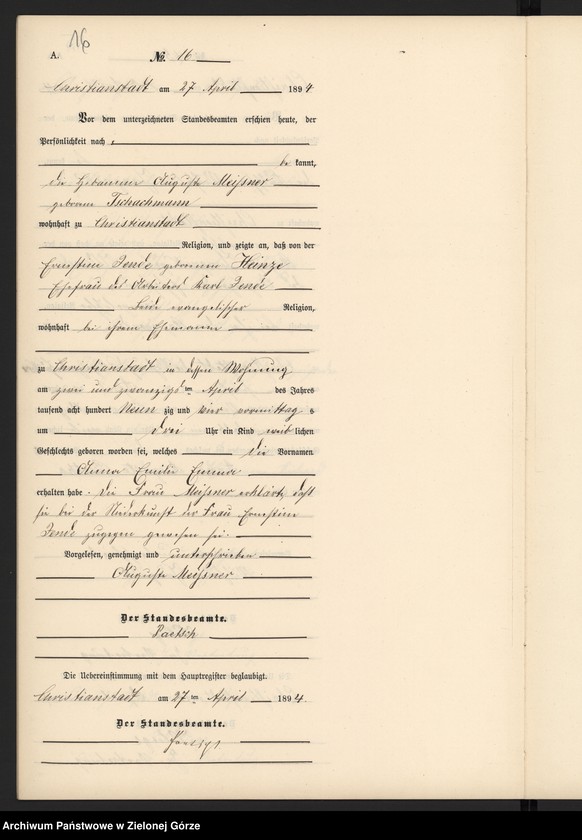 16
A.
No. 16
Christianstadt am 27 April 1894
Vor dem unterzeichneten Standesbeamten erschien heute, der
Persönlichkeit nach
be kannt,
die Hebamme Auguste Meißner
geborene Tschachmann
wohnhaft zu Christianstadt
Religion, und zeigte an, daß von der
Ernestine geborenen Heinze
Ehefrau des Karl
beide evangelischer Religion,
wohnhaft bei ihrem Ehemanne
zu Christianstadt in dessen Wohnung
am zwei und zwanzigsten April des Jahres
tausend acht hundert Neun zig und vier vormittags
um drei Uhr ein Kind weib lichen
Geschlechts geboren worden sei, welches die Vornamen
Anna Emilie Emma
erhalten habe. Die Frau Meißner erklärte daß
sie bei der Niederkunft der Frau Ernestine
zugegen gewesen sei.
Vorgelesen, genehmigt und unterschrieben
Auguste Meißner
Der Standesbeamte.
Paetsch
Die Uebereinstimmung mit dem Hauptregister beglaubigt.
Christianstadt am 27ten April 1894
Der Standesbeamte.
Archiwum Państwowe w Zielonej Górze